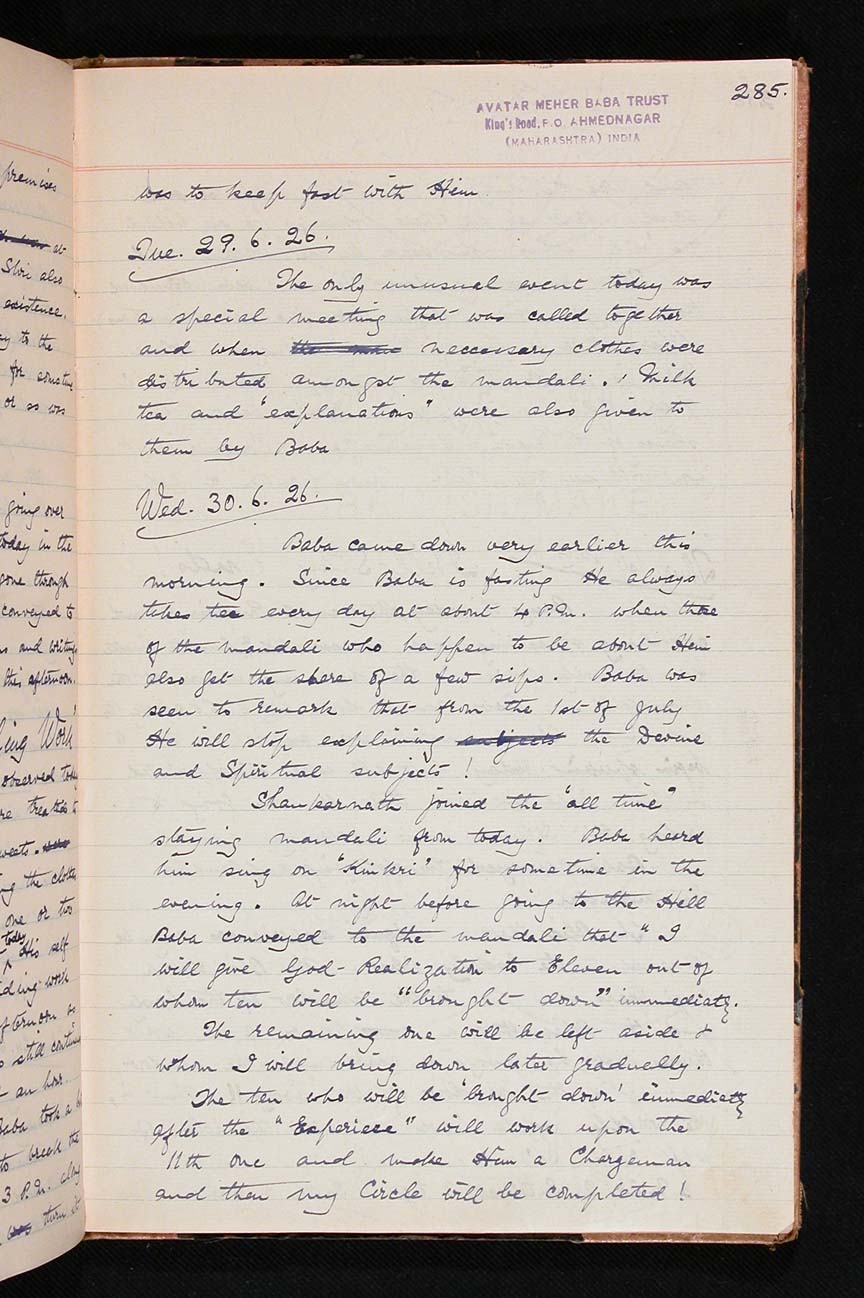 285.
AVATAR MEHER BABA TRUST
King's Road, P.O. AHMEDNAGAR
(MAHARASHTRA) INDIA
was to keep fast with Him.
Tue. 29. 6. 26.
The only unusual event today was
a special meeting that was called together
and when neccessary clothes were
distributed amongst the mandali.! Milk
tea and "explanations" were also given to
them by Baba
Wed. 30. 6. 26.
Baba came down very earlier this
morning. Since Baba is fasting He always
takes tea every day at about 4 P.M. when those
of the mandali who happen to be about Him
also get the share of a few sips. Baba was
seen to remark that from the 1st of July
He will stop explaining subjects the Devine
and Spiritual subjects!
Shankarnath joined the "all time"
staying mandali from today. Baba heard
him sing on "Kinkri" for sometime in the
evening. At night before going to the Hill
Baba conveyed to the mandali that "I
will give God-Realization to Eleven out of
whom ten will be "brought down" immediatly.
The remaining one will be left aside &
whom I will bring down later gradually.
The ten who will be 'brought down' immediatly
after the "Experiece" will work upon the
11th one and make Him a Chargeman
and then my Circle will be completed!
premises
at
Shri also
existence.
to the
for
or as was
going over
today in the
gone through
conveyed to
and writing
this afternoon.
Work"
observed today
sweets.
the clothes
one or two
today
His self
work
afternoon
still
an hour.
Baba took a
to break the
3 P.M.
turn it